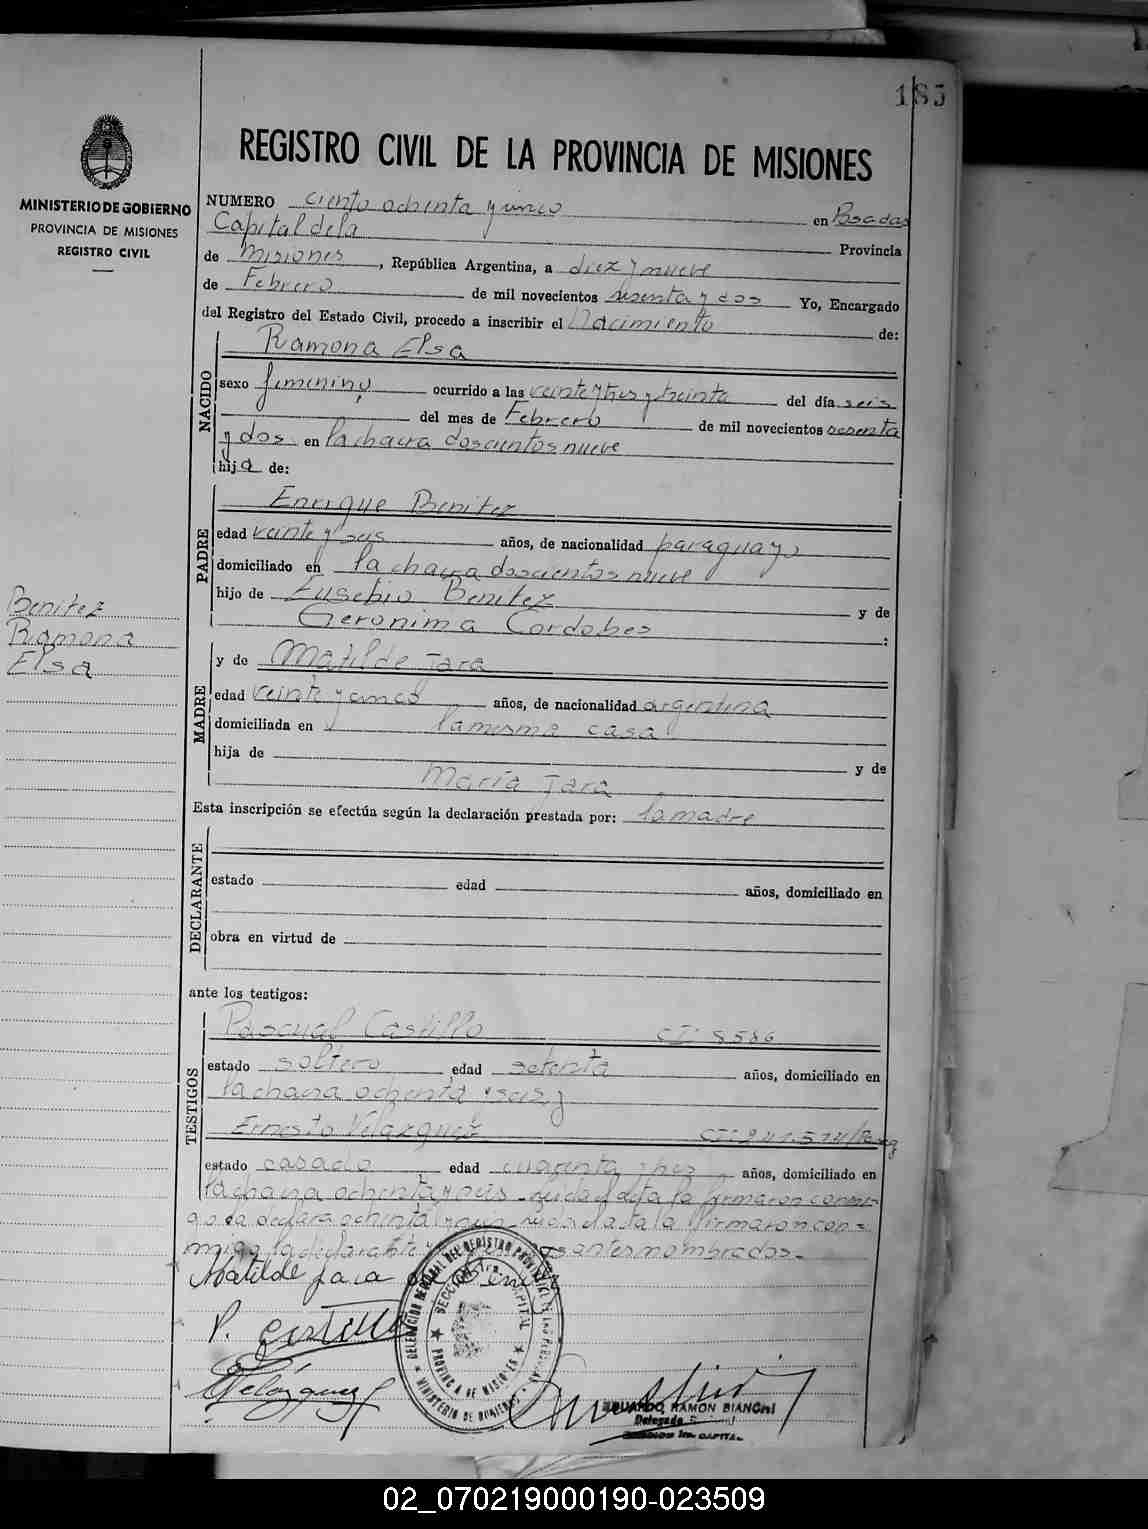 185
REGISTRO CIVIL DE LA PROVINCIA DE MISIONES
MINISTERIO DE GOBIERNO
PROVINCIA DE MISIONES
REGISTRO CIVIL
NUMERO ciento ochenta y cinco en Posadas
Capital de la Provincia
de Misiones, República Argentina, a diez y nueve
de Febrero de mil novecientos sesenta y dos Yo, Encargado
del Registro del Estado Civil, procedo a inscribir el Nacimiento de:
NACIDO
Ramona Elsa
sexo femenino ocurrido a las veinte y tres y treinta del día seis
del mes de Febrero de mil novecientos sesenta
y dos en la chacra doscientos nueve
hija de:
PADRE
Enrique Benitez
edad veinte y seis años, de nacionalidad paraguayo
domiciliado en la chacra doscientos nueve
hijo de Eusebio Benitez y de
Geronima Cordobes :
Benitez
Ramona
Elsa
MADRE
y de Matilde Jara
edad veinte y cinco años, de nacionalidad argentina
domiciliada en la misma casa
hija de y de
Maria Jara
Esta inscripción se efectúa según la declaración prestada por: la madre
DECLARANTE
estado edad años, domiciliado en
obra en virtud de
ante los testigos:
TESTIGOS
Pascual Castillo CI 8586
estado soltero edad setenta años, domiciliado en
la chacra ochenta y seis y
Ernesto Velazquez
estado casado edad cuarenta y tres años, domiciliado en
la chacra ochenta y seis leida el acta la firmaron conmi-
firmaron con=
migo la declarante y antes nombrados.=
Matilde jara de Benitez
P. Castillo
E. Velázquez
DELEGACION REGIONAL DEL REGISTRO PROVINCIAL DE LAS PERSONAS
SECCION 1ra. CAPITAL
PROVINCIA DE MISIONES
MINISTERIO DE GOBIERNO
EDUARDO RAMON BIANCHI
Delegado
SECCION 1ra. CAPITAL
02_070219000190-023509